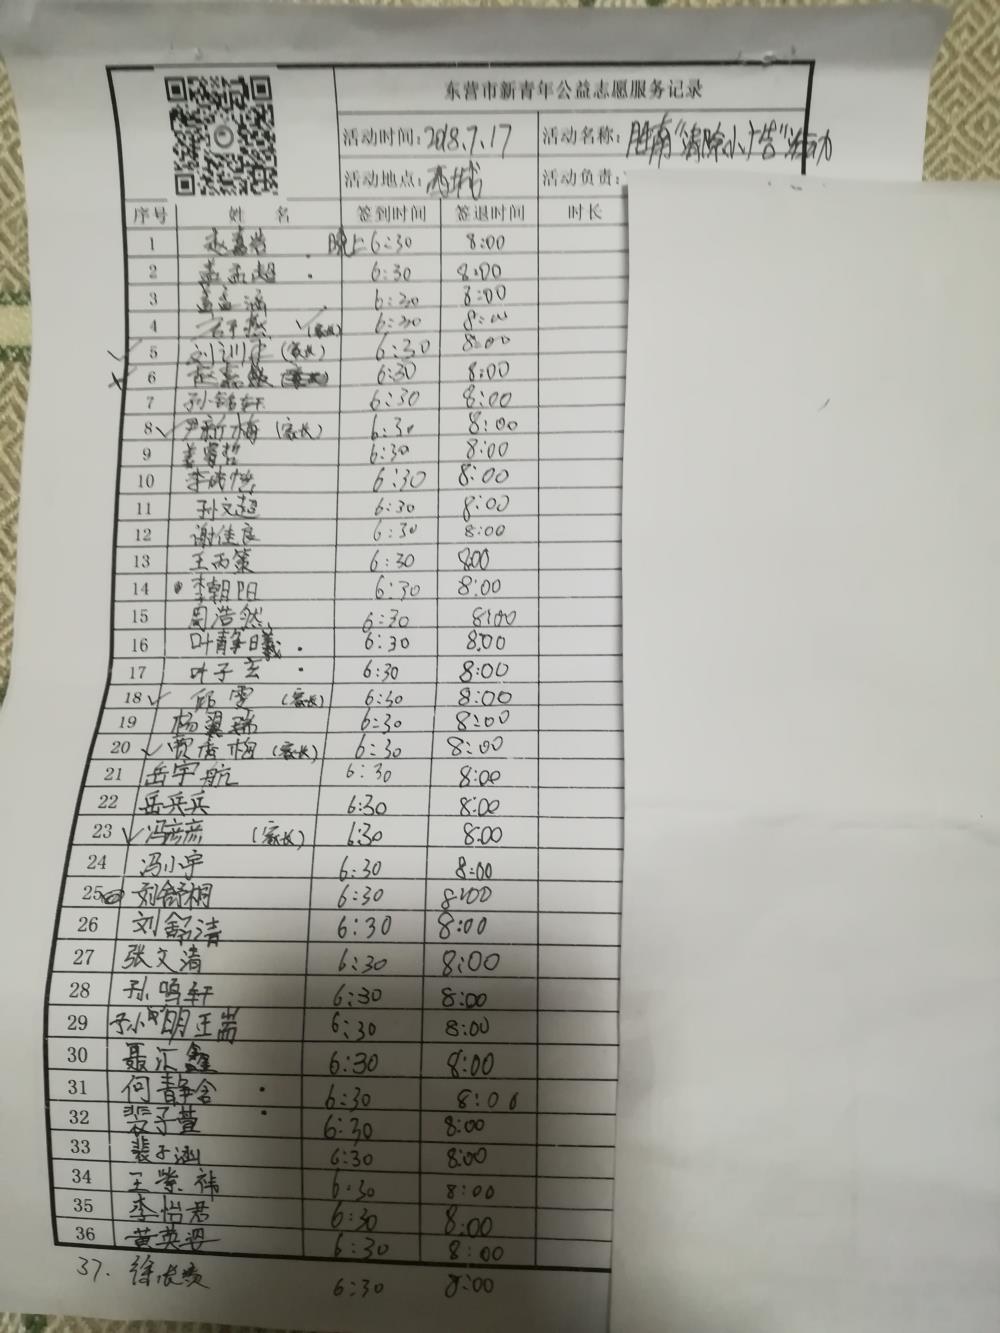 东营市新青年公益志愿服务记录
活动时间: 2018.7.17 活动名称: 胜南“清除小广告”活动
活动地点: 西城 活动负责:
序号 姓 名 签到时间 签退时间 时长
1 赵嘉浩 晚上6:30 8:00
2 孟孟超 6:30 8:00
3 孟孟涵 6:30 8:00
4 (家长) 6:30 8:00
5 (家长) 6:30 8:00
6 6:30 8:00
7 孙铭轩 6:30 8:00
8 尹新梅 (家长) 6:30 8:00
9 姜睿哲 6:30 8:00
10 6:30 8:00
11 孙文超 6:30 8:00
12 谢佳良 6:30 8:00
13 王丙策 6:30 800
14 李朝阳 6:30 8:00
15 周浩然 6:30 8:00
16 叶静曦 6:30 8:00
17 叶子玄 6:30 8:00
18 邱雪 (家长) 6:30 8:00
19 杨翼瑞 6:30 8:00
20 贾俊梅 (家长) 6:30 8:00
21 岳宇航 6:30 8:00
22 岳兵兵 6:30 8:00
23 冯彦彦 (家长) 6:30 8:00
24 冯小宇 6:30 8:00
25 刘舒桐 6:30 8:00
26 刘舒清 6:30 8:00
27 张文清 6:30 8:00
28 孙鸣轩 6:30 8:00
29 6:30 8:00
30 聂汇鑫 6:30 8:00
31 何静含 6:30 8:00
32 裴子萱 6:30 8:00
33 裴子涵 6:30 8:00
34 王紫祎 6:30 8:00
35 李怡君 6:30 8:00
36 黄英姿 6:30 8:00
37. 6:30 8:00